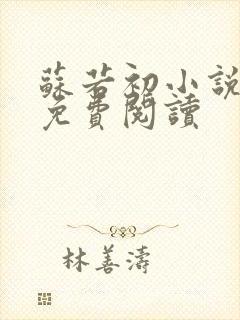 蘇若初小說
免費閱讀
林善濤